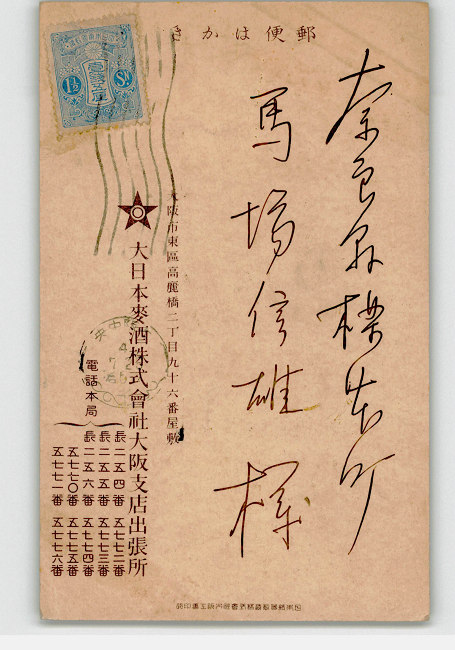 郵便はかき
奈良県
馬場信雄様
大阪市東區高麗橋二丁目九十六番屋敷
大日本麥酒株式會社大阪支店出張所
電話本局
長二五四番 五七七二番
長二五五番 五七七三番
長二五六番 五七七四番
五七七〇番 五七七五番
五七七一番 五七七六番
1½ Sn.